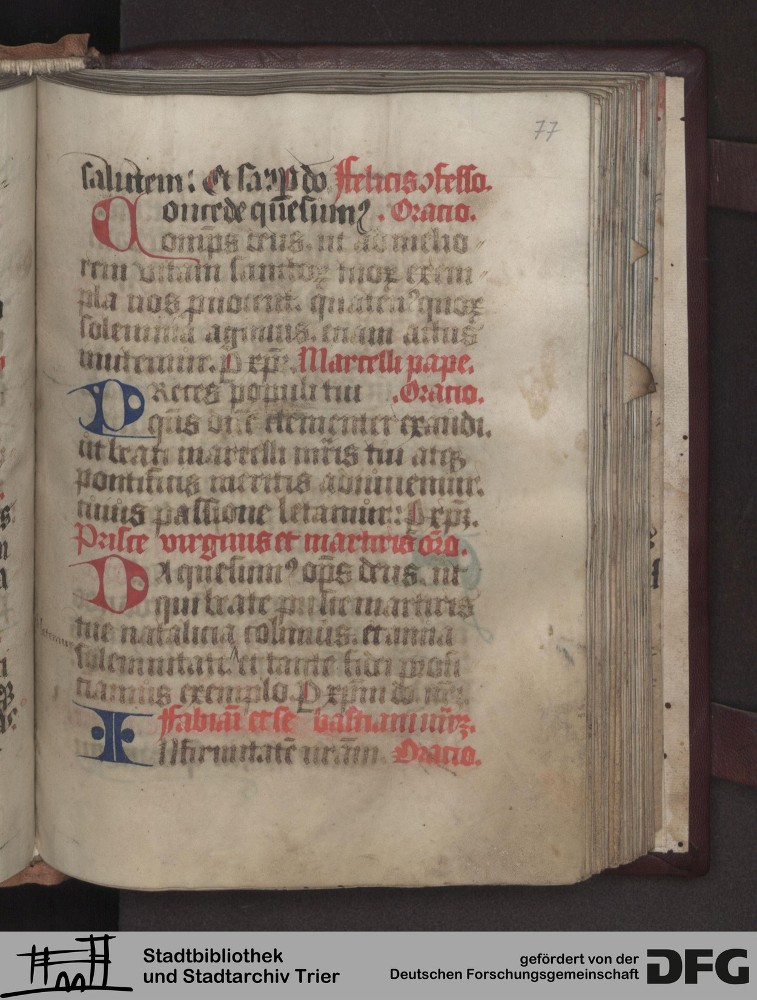 77
salutem: Et sa⁊ p do Felicis ↄfesso.
Concede quesumꝰ. Oracio.
omps deus. ut ad melio
rem vitam sanctoꝝ tuoꝝ exem
pla nos ꝓuocent. quatenꝰ quoꝝ
solemnia agimus. etiam actus
imitemur. P xpm. Marcelli pape.
Preces populi tui .Oracio.
qs dne clementer exaudi.
ut beati marcelli mris tui atqꝫ
pontificis meritis adiuuemur.
cuius passione letamur: P xpm.
Prisce virginis et martiris oro.
Da quesumꝰ ops deus. ut
qui beate prisce martiris
tue natalicia colimus. et annua
solemnitate et tante fidei profi
ciamus exemplo. P xpm do nrm
Fabiani et se bastiani mrꝫ.
Infirmitate nram Oracio.
Stadtbibliothek
und Stadtarchiv Trier
gefördert von der
Deutschen Forschungsgemeinschaft
DFG